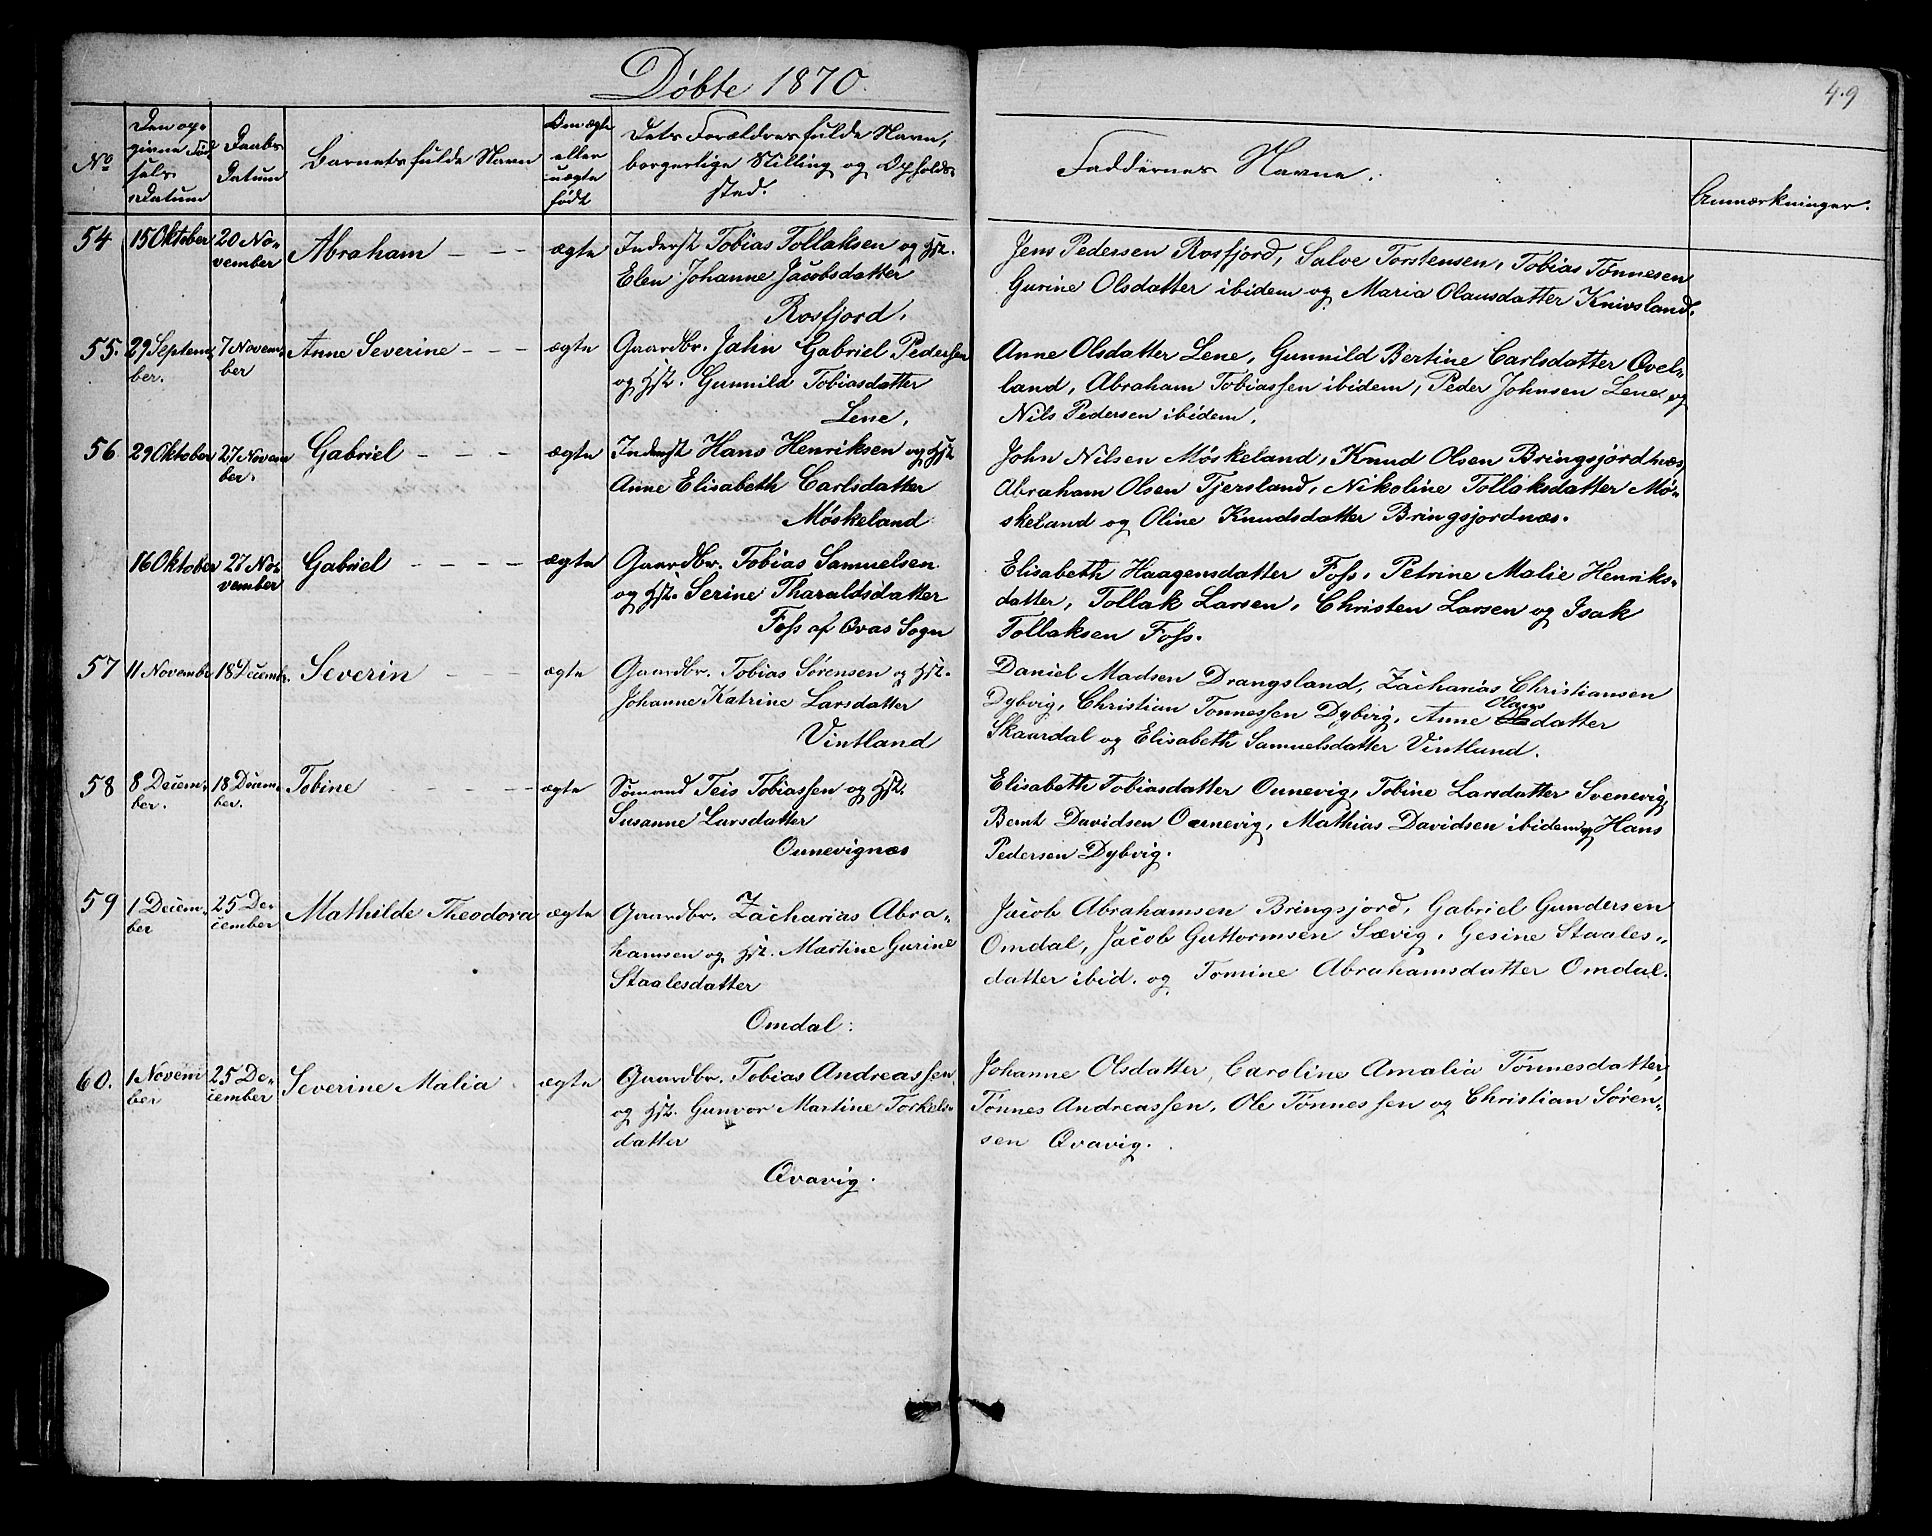 Døbte 1870.
49
No
Den op-
givne Fød
sels
Datum
Daabs
Datum
Barnets fulde Navn
Om ægte
eller
uægte
født
Dets Forældres fulde Navn,
borgerlige Stilling og Opholds-
sted.
Faddernes Navne.
Anmærkninger.
54 15 Oktober 20 No-
vember Abraham - - - ægte Inderst Tobias Tollaksen og Hst.
Elen Johanne Jacobsdatter
Rosfjord.
Jens Pedersen Rosfjord, Salve Torstensen, Tobias Tønnesen
Gurine Olsdatter ibidem og Maria Olausdatter Knivsland.
55. 29 Septem-
ber. 7 Novem-
ber Anne Severine - - - ægte Gaardbr. Jahn Gabriel Pedersen
og Hst. Gunnild Tobiasdatter
Lene.
Anne Olsdatter Lene, Gunnild Bertine Carlsdatter Qvel-
land, Abraham Tobiassen ibidem, Peder Johnsen Lene og
Nils Pedersen ibidem.
56 29 Oktober 27 Novem
ber. Gabriel - - - ægte Inderst Hans Henriksen og Hst
Anne Elisabeth Carlsdatter
Møskeland
John Nilsen Møskeland, Knud Olsen Bringsjordnæs,
Abraham Olsen Tjersland, Nikoline Tollaksdatter Mø-
skeland og Oline Knudsdatter Bringsjordnæs.
16 Oktober 27 No-
vember Gabriel - - - - ægte Gaardbr. Tobias Samuelsen
og Hst. Serine Tharaldsdatter
Foss af Qvas Sogn
Elisabeth Haagensdatter Foss, Petrine Malie Henriks-
datter, Tollak Larsen, Christen Larsen og Isak
Tollaksen Foss.
57 11 Novembr 18 Decembr. Severin - - - ægte Gaardbr. Tobias Sørensen og Hst.
Johanne Katrine Larsdatter
Vintland
Daniel Madsen Drangsland, Zacharias Christiansen
Dybvig, Christian Tønnessen Dybvig, Anne Olausdatter
Skaardal og Elisabeth Samuelsdatter Vintland.
58 8 Decem-
ber. 18 Decem-
ber. Tobine - - - - ægte Sømand Teis Tobiassen og Hst.
Susanne Larsdatter
Ounevignæs
Elisabeth Tobiasdatter Ounevig, Tobine Larsdatter Svenevig,
Bernt Davidsen Ounevig, Mathias Davidsen ibidem og Hans
Pedersen Dybvig.
59 1 Decem-
ber 25 De-
cember Mathilde Theodora ægte Gaardbr. Zacharias Abra-
hamsen og Hst. Martine Gurine
Staalesdatter
Omdal.
Jacob Abrahamsen Bringsjord, Gabriel Gundersen
Omdal, Jacob Guttormsen Sævig, Gesine Staales-
datter ibid. og Tomine Abrahamsdatter Omdal.
60. 1 Novem
ber 25 De-
cember Severine Malia - ægte Gaardbr. Tobias Andreassen
og Hst. Gunvor Martine Torkels-
datter
Qvavig.
Johanne Olsdatter, Caroline Amalia Tønnesdatter,
Tønnes Andreassen, Ole Tønnessen og Christian Søren-
sen Qvavig.